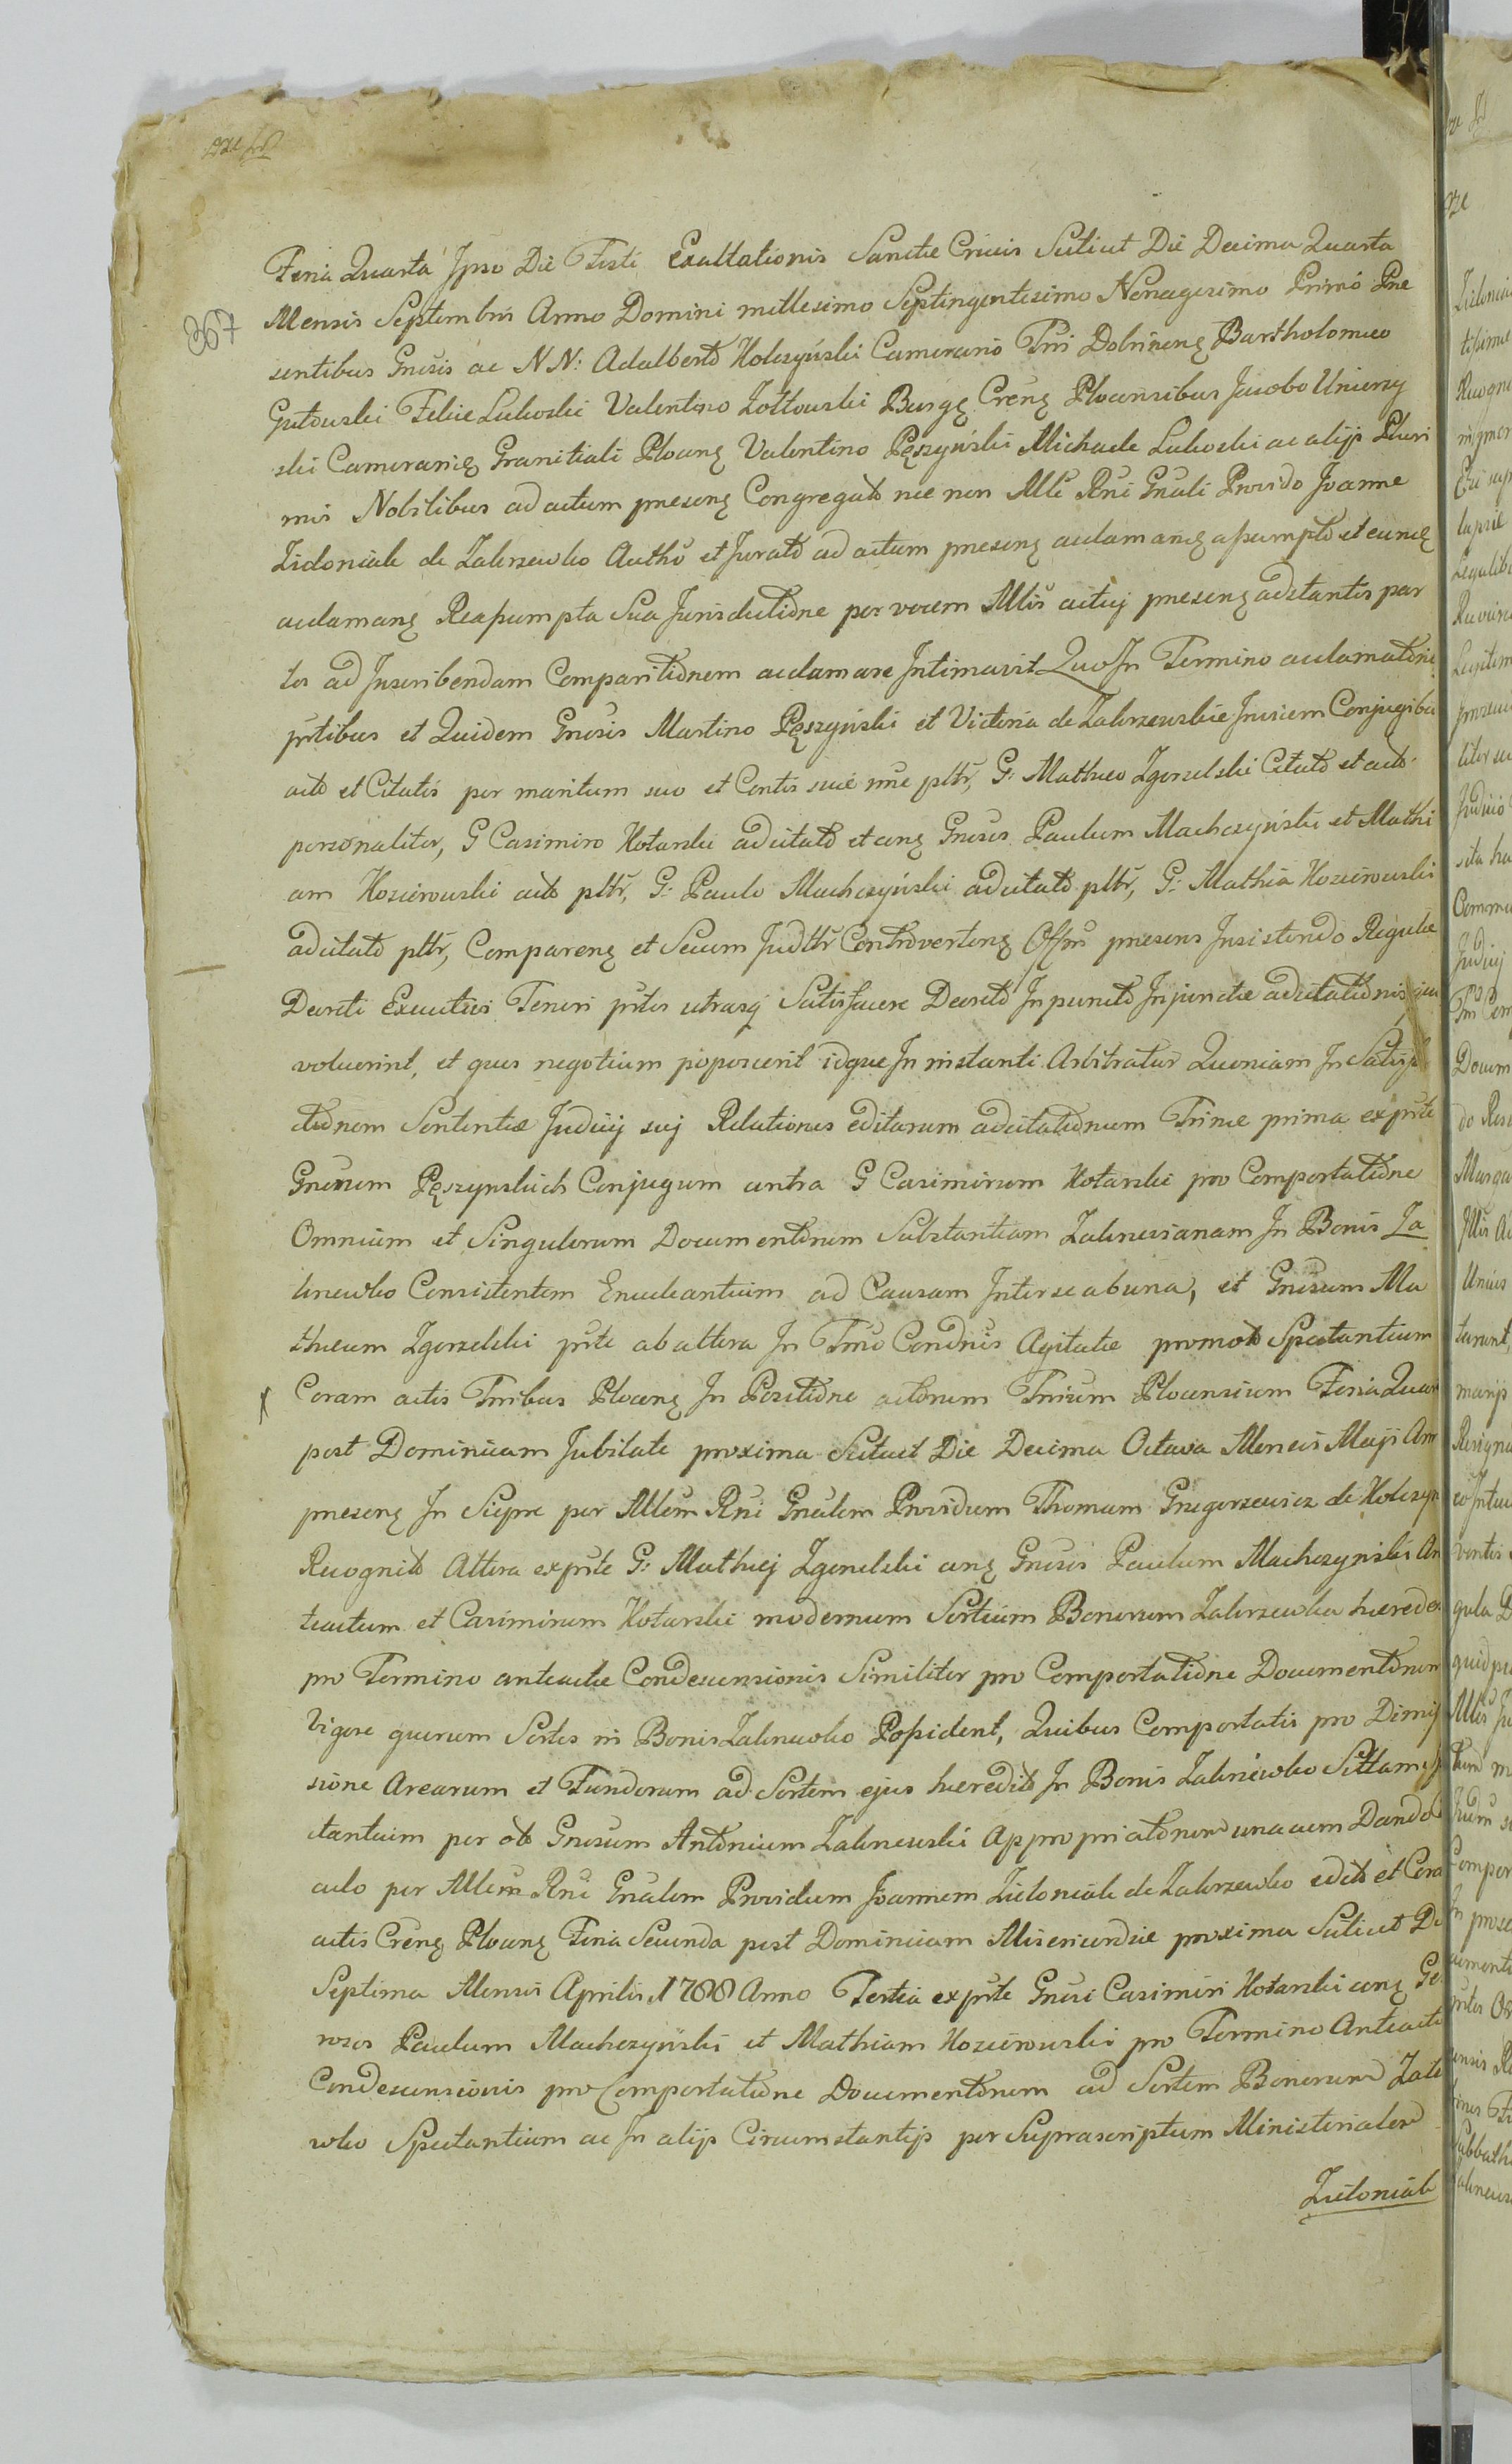 367
Feria Quarta Ipso Die Festi Exaltationis Sanctae Crucis Scilicet Die Decima Quarta
Mensis Septembris Anno Domini millesimo Septingentesimo Nonagesimo Primo Prae
sentibus Gnosis ac NN: Adalberto Kolczyński Camerario Tri Dobrinens Bartholomeo
Gutowski Felice Lukoski Valentino Zołtowski Burgs Crens Plocensibus Jacobo Unierzy
ski Camerarie Granitiali Plocens Valentino Pęszyński Michaele Lukoski ac alijs Pluri
mis Nobilibus ad actum praesens Congregatis nec non Mlli Rni Gnali Provido Joanne
Zicloniak de Zakrzewko Autho et Jurato ad actum praesens acclamans assumpto et eunde
acclamans Reassumpta Sua Jurisdictione per vocem Mllis actui praesens adstantis par
tes ad Inscribendam Comparitionem acclamare Intimavit Quo In Termino acclamationis
prtibus et Quidem Gnosis Martino Pęszyński et Victoria de Zakrzewskie Invicem Conjugibus
acto et Citatis per maritum suo et Contis suae nne pltr, G: Matheo Zgorzelski Citato et acto
personaliter, G Casimiro Kotarski adcitato et cons Gnosos Paulum Machczyński et Mathi
am Kozierowski acto pltr, G: Paulo Machczyński adcitato pltr, G: Mathia Kozierowski
adcitato pltr, Comparens et Secum Judttr Controvertens Offm praesens Insistendo Regulae
Decreti Exercitus Teneri prtes utrasq Satisfacere Decreto In puncto Injunctae adcitationis
voluerint, et quos negotium poposcerit idque In instanti Arbitratur Quoniam In Satisfa
ctionem Sententiae Judicij sui Relationes editarum adcitationum Trinae prima ex prte
Gnorum Pęszynskich Conjugum contra G Casimirum Kotarski pro Comportatione
Omnium et Singulorum Documentorum Substantiam Zakrzevianam In Bonis Za
krzewko Consistentem Enucleantium ad Causam Inter se ab una, et Gnosum Ma
theum Zgorzelski prte ab altera In Tmo Condnis Agitatae promoto Spectantium
Coram actis Tribus Plocens In Positione actorum Trium Plocensium Feria Quar
post Dominicam Jubilate proxima Scilicet Die Decima Octava Mensis Maji Ann
praesens In Sierpc per Mllem Rni Gnalem Providum Thomam Grzegorzewicz de Kolczyn
Recognito Altera ex prte G: Mathej Zgorzelski cons Gnosos Paulum Machczynski An
teactum et Casimirum Kotarski modernum Sortium Bonorum Zakrzewka haeredes
pro Termino anteactae Condescensionis Similiter pro Comportatione Documentorum
Vigore quorum Sortes in Bonis Zakrzewko Possident, Quibus Comportatis pro Dimis
sione Arearum et Fundorum ad Sortem ejus haeredit In Bonis Zakrzewko Sittam
ctantium per olt Gnosum Antonium Zakrzewski Appropriatorum una cum Dando
culo per Mllem Rni Gnalem Providum Joannem Zicloniak de Zakrzewko edito et Cora
actis Crens Plocens Feria Secunda post Dominicam Misericordiae proxima Scilicet Di
Septima Mensis Aprilis 1788 Anno Tertia ex prte Gnosi Casimiri Kotarski cons Ge
rosos Paulum Machczyński et Mathiam Kozierowski pro Termino Anteacte
Condescensionis pro Comportatione Documentorum ad Sortem Bonorum Zak
wko Spectantium ac In alijs Circumstantijs per Suprascriptum Ministerialem
Zicloniak